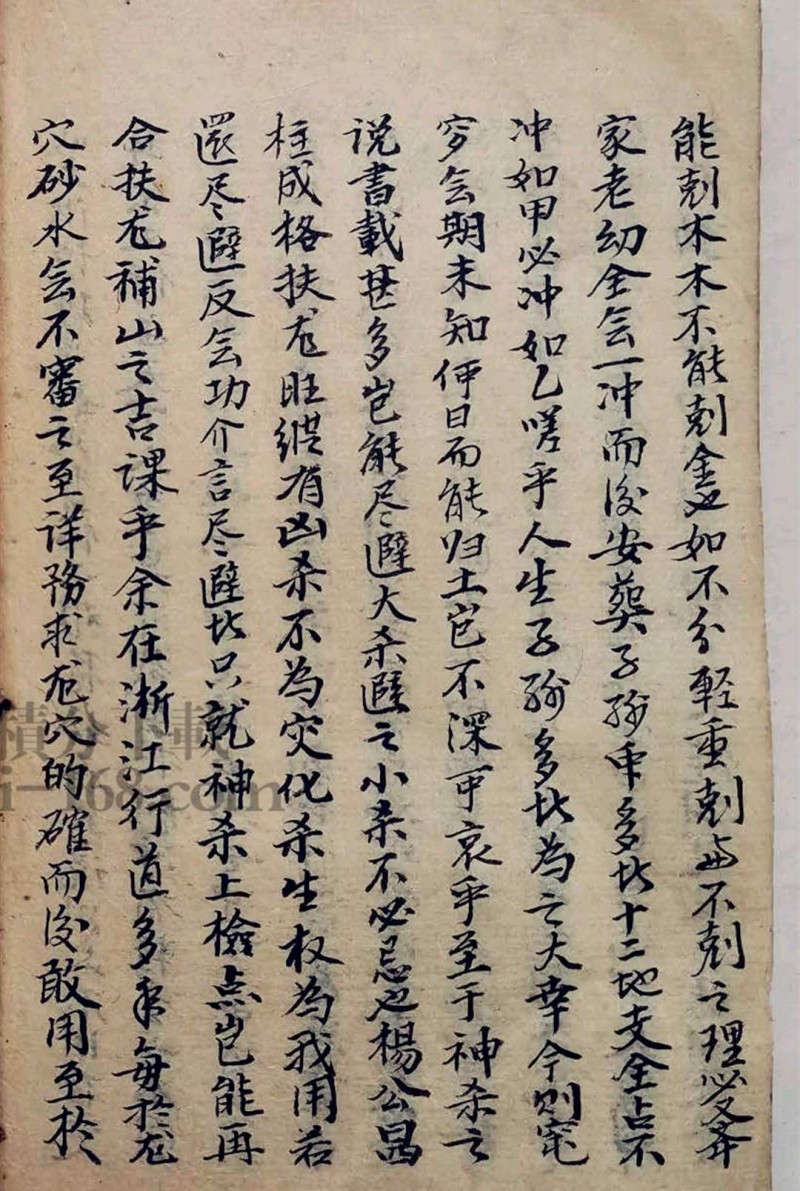 能剋木木不能剋金也如不分輕重剋与不剋之理必要弃
家老幼全无一冲而後安葬子孫中多此十二地支全占不
冲如甲必冲如乙嗟乎人生子孫多此為之大幸今则寃
穷无期未知何日而能归土岂不深可哀乎至于神杀之
说書載甚多岂能尽避大杀避之小杀不必忌也楊公昌
柱成格扶龙旺縱有凶杀不為灾化杀生权為我用若
還尽避反无功介言尽避此只就神杀上檢点岂能再
合扶龙補山之吉課乎余在浙江行道多年每於龙
穴砂水无不審之至详務求龙穴的確而後敢用至於
積分下載
i-168.com